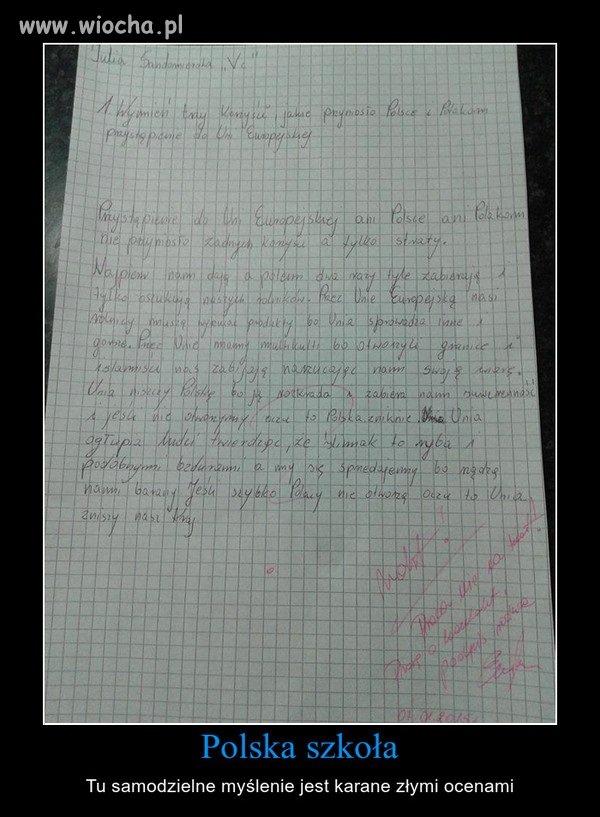 www.wiocha.pl
Julia Sandomierska „Vc"
1 Wymień trzy korzyści, jakie przyniosło Polsce i Polakom
przystąpienie do Uni Europejskiej
Przystąpienie do Uni Europejskiej ani Polsce ani Polakom
nie przyniosło żadnych korzyści a tylko straty.
Najpierw nam dają a potem dwa razy tyle zabierają i
tylko oszukują naszych rolników. Przez Unie Europejską nasi
rolnicy muszą wyrzucać produkty bo Unia sprowadza inne i
gorsze. Przez Unie mamy multikulti bo otworzyli granice i
islamiści nas zabijają narzucając nam swoją wiarę.
Unia niszczy Polskę bo ją rozkrada i zabiera nam suwerenność
i jeśli nie otworzymy oczu to Polska zniknie. Unia
ogłupia ludzi twierdząc, że ślimak to ryba i
podobnymi bzdurami a my się sprzedajemy bo rządzą
nami barany. Jeśli szybko Polacy nie otworzą oczu to Unia
zniszy nasz kraj
Proszę o
podpis rodzica
Polska szkoła
Tu samodzielne myślenie jest karane złymi ocenami